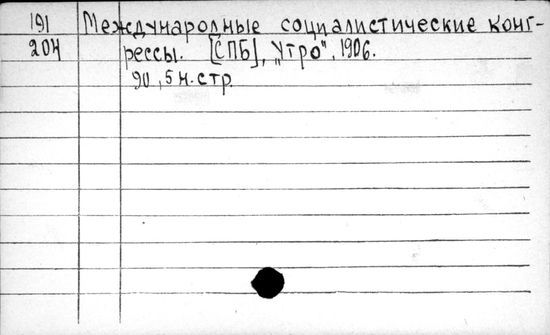 191 Международные социалистические конг-
204 рессы. [СПБ], „Утро", 1906.
90, 5 н. стр.